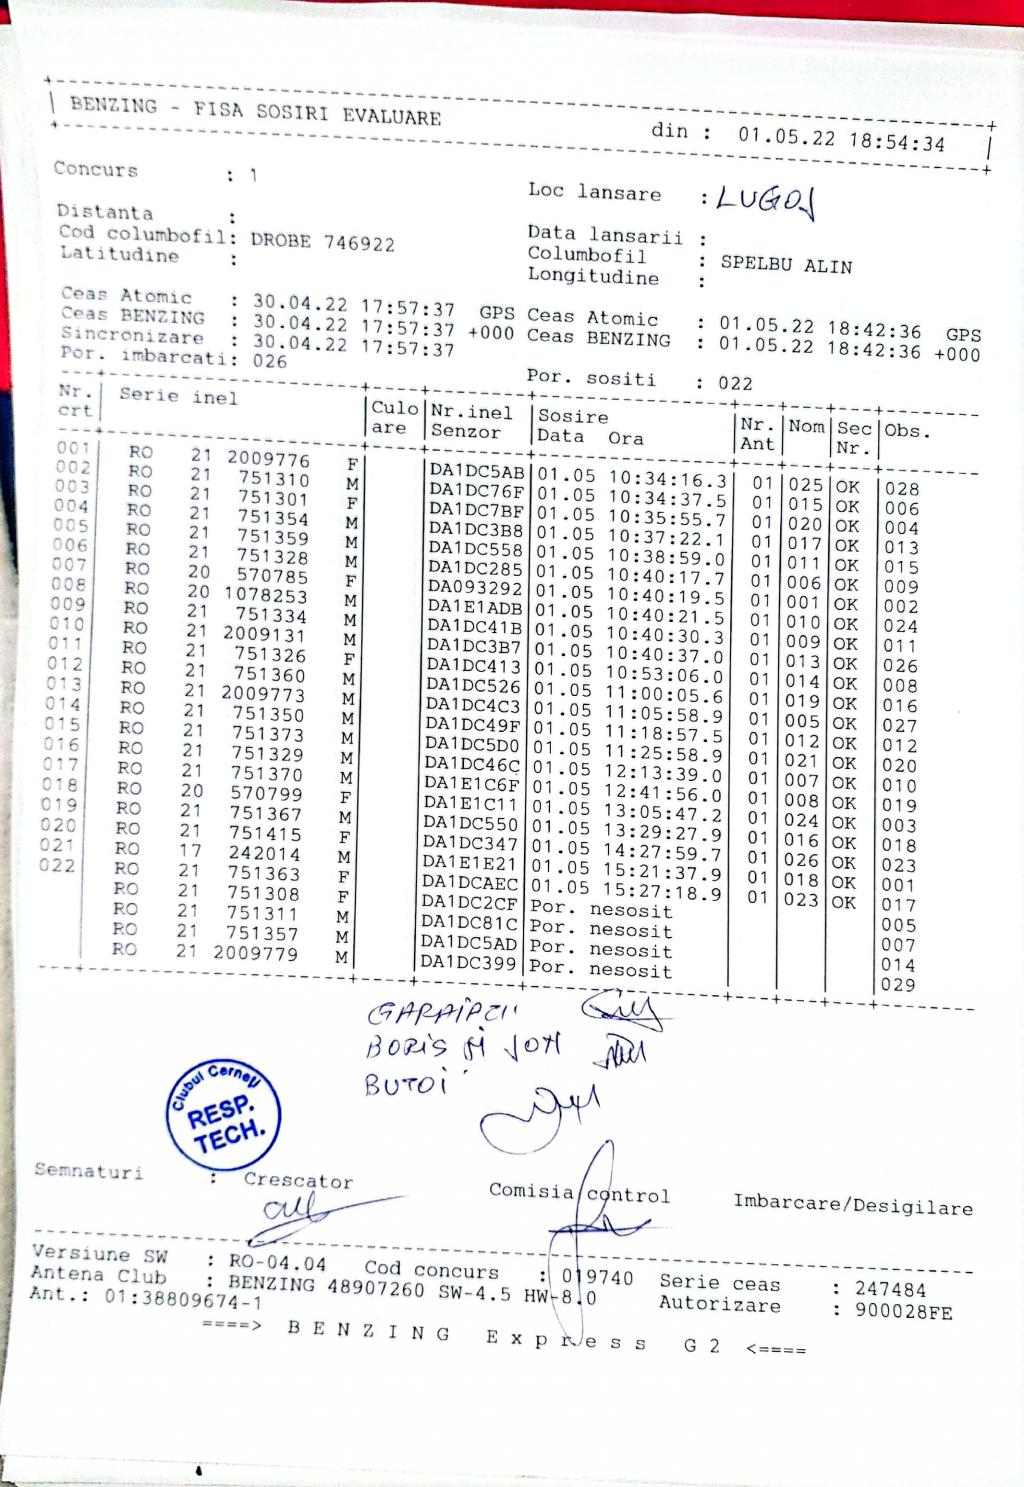 BENZING - FISA SOSIRI EVALUARE din : 01.05.22 18:54:34
Concurs : 1 Loc lansare : LUGOJ
Distanta : Data lansarii :
Cod columbofil: DROBE 746922 Columbofil : SPELBU ALIN
Latitudine : Longitudine :
Ceas Atomic : 30.04.22 17:57:37 GPS Ceas Atomic : 01.05.22 18:42:36 GPS
Ceas BENZING : 30.04.22 17:57:37 +000 Ceas BENZING : 01.05.22 18:42:36 +000
Sincronizare : 30.04.22 17:57:37
Por. imbarcati: 026 Por. sositi : 022
Nr. Serie inel Culo Nr.inel Sosire Nr. Nom Sec Obs.
crt are Senzor Data Ora Ant Nr.
001 RO 21 2009776 F DA1DC5AB 01.05 10:34:16.3 01 025 OK 028
002 RO 21 751310 M DA1DC76F 01.05 10:34:37.5 01 015 OK 006
003 RO 21 751301 F DA1DC7BF 01.05 10:35:55.7 01 020 OK 004
004 RO 21 751354 M DA1DC3B8 01.05 10:37:22.1 01 017 OK 013
005 RO 21 751359 M DA1DC558 01.05 10:38:59.0 01 011 OK 015
006 RO 21 751328 M DA1DC285 01.05 10:40:17.7 01 006 OK 009
007 RO 20 570785 F DA093292 01.05 10:40:19.5 01 001 OK 002
008 RO 20 1078253 M DA1E1ADB 01.05 10:40:21.5 01 010 OK 024
009 RO 21 751334 M DA1DC41B 01.05 10:40:30.3 01 009 OK 011
010 RO 21 2009131 M DA1DC3B7 01.05 10:40:37.0 01 013 OK 026
011 RO 21 751326 F DA1DC413 01.05 10:53:06.0 01 014 OK 008
012 RO 21 751360 M DA1DC526 01.05 11:00:05.6 01 019 OK 016
013 RO 21 2009773 M DA1DC4C3 01.05 11:05:58.9 01 005 OK 027
014 RO 21 751350 M DA1DC49F 01.05 11:18:57.5 01 012 OK 012
015 RO 21 751373 M DA1DC5D0 01.05 11:25:58.9 01 021 OK 020
016 RO 21 751329 M DA1DC46C 01.05 12:13:39.0 01 007 OK 010
017 RO 21 751370 M DA1E1C6F 01.05 12:41:56.0 01 008 OK 019
018 RO 20 570799 F DA1E1C11 01.05 13:05:47.2 01 024 OK 003
019 RO 21 751367 M DA1DC550 01.05 13:29:27.9 01 016 OK 018
020 RO 21 751415 F DA1DC347 01.05 14:27:59.7 01 026 OK 023
021 RO 17 242014 M DA1E1E21 01.05 15:21:37.9 01 018 OK 001
022 RO 21 751363 F DA1DCAEC 01.05 15:27:18.9 01 023 OK 017
RO 21 751308 F DA1DC2CF Por. nesosit 005
RO 21 751311 M DA1DC81C Por. nesosit 007
RO 21 751357 M DA1DC5AD Por. nesosit 014
RO 21 2009779 M DA1DC399 Por. nesosit 029
BORIS
BUTOI
Clubul Cerneți
RESP.
TECH.
Semnaturi : Crescator Comisia control Imbarcare/Desigilare
Versiune SW : RO-04.04 Cod concurs : 019740 Serie ceas : 247484
Antena Club : BENZING 48907260 SW-4.5 HW-8.0 Autorizare : 900028FE
Ant.: 01:38809674-1
====> BENZING Express G2 <====